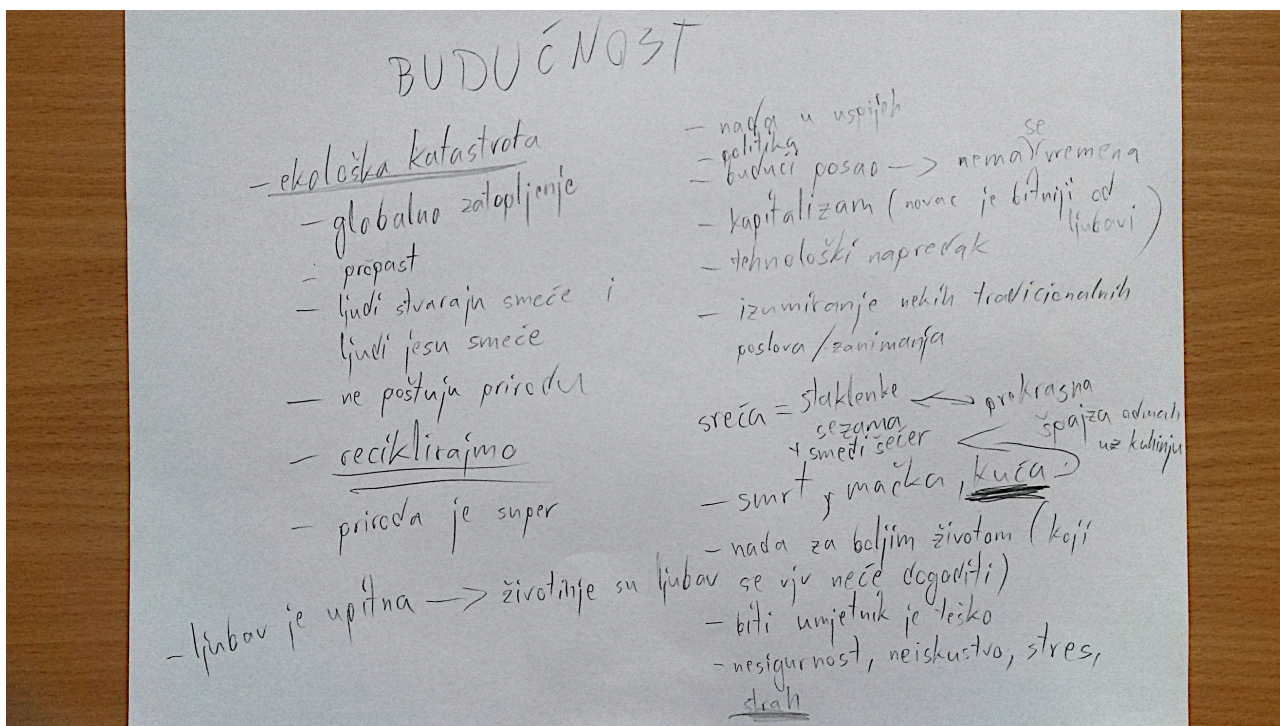 BUDUĆNOST
- ekološka katastrofa
- globalno zatopljenje
- propast
- ljudi stvaraju smeće i
ljudi jesu smeće
- ne poštuju prirodu
- reciklirajmo
- priroda je super
- ljubav je upitna —> životinje su ljubav
- nada u uspijeh
- politika
- budući posao —> nema se vremena
- kapitalizam (novac je bitniji od
ljubavi)
- tehnološki napredak
- izumiranje nekih tradicionalnih
poslova / zanimanja
sreća = staklenke <—> prekrasna
sezama špajza odmah
+ smeđi šećer uz kuhinju
- smrt, mačka, kuća
- nada za boljim životom (koji
se vjv neće dogoditi)
- biti umjetnik je teško
- nesigurnost, neiskustvo, stres,
strah